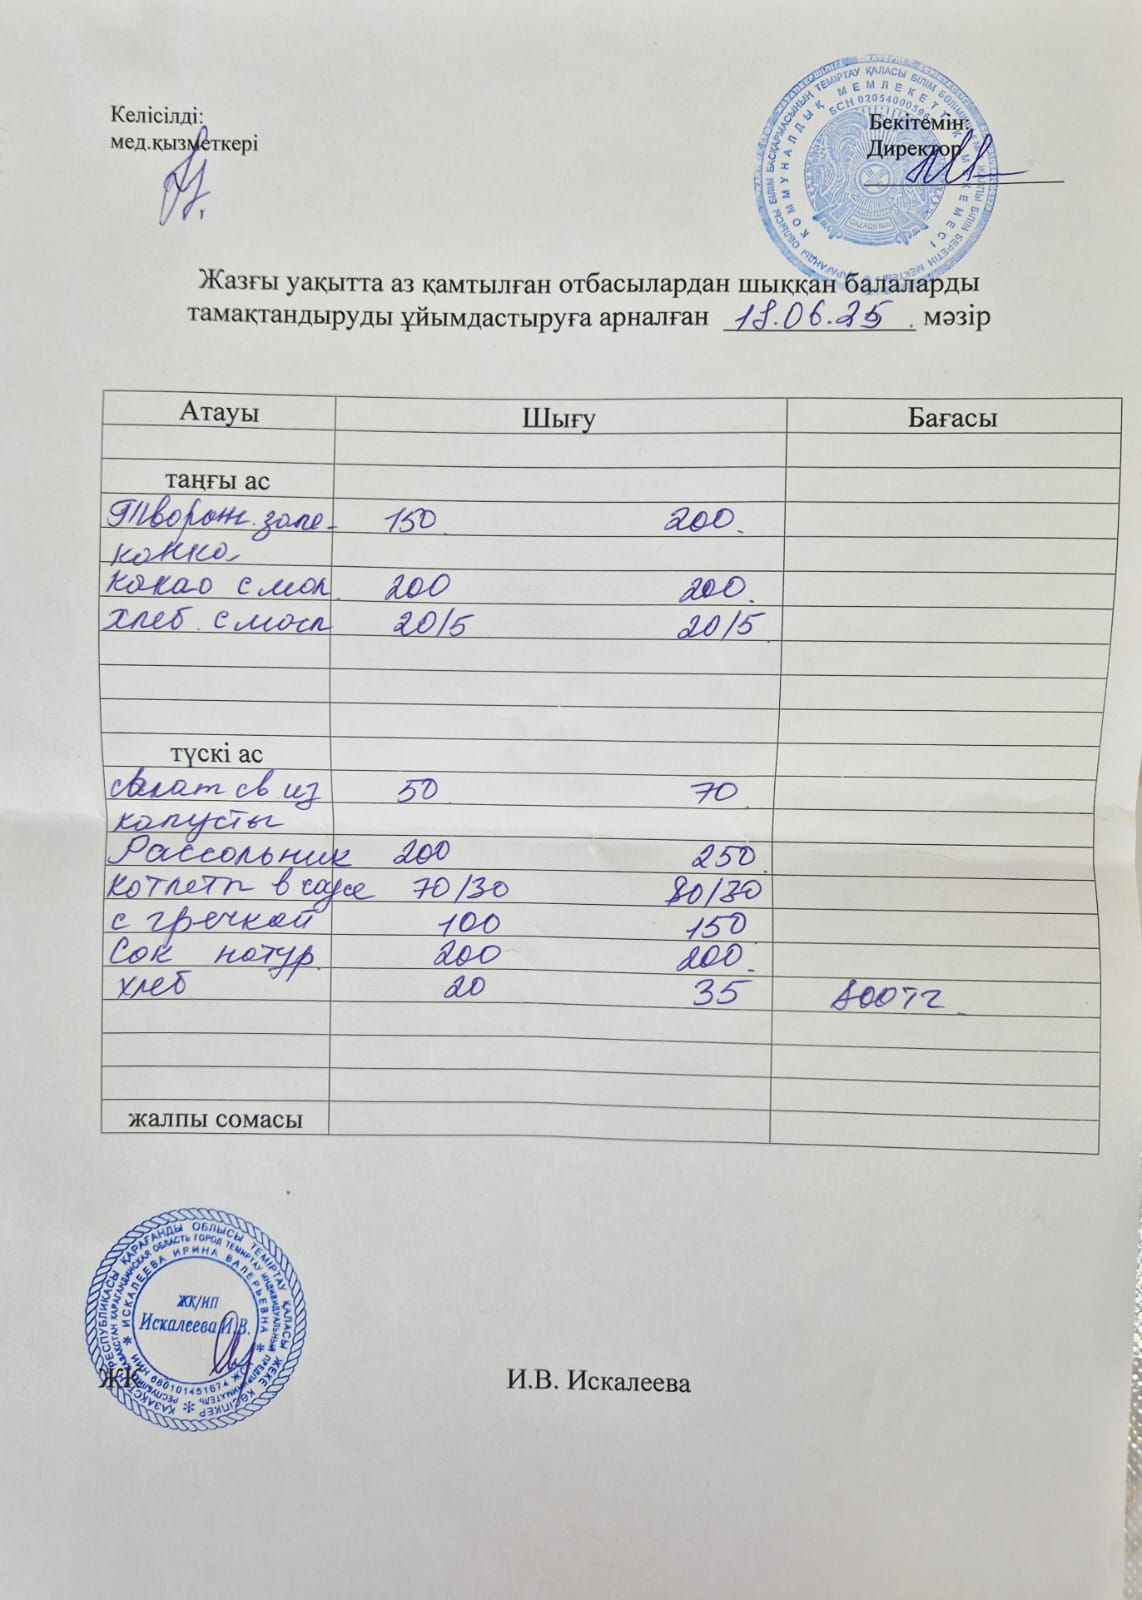 Келісілді:
мед.қызметкері
Бекітемін:
Директор
БСН 02054000596
QAZAQSTAN
Жазғы уақытта аз қамтылған отбасылардан шыққан балаларды
тамақтандыруды ұйымдастыруға арналған 18.06.25 . мәзір
Атауы Шығу Бағасы
таңғы ас
Творож. запе- 150 200.
канка
какао с мол. 200 200.
хлеб с масл 20/5 20/5
түскі ас
салат св. из 50 70
капусты
Рассольник 200 250
котлеты в соусе 70/30 80/30
с гречкой 100 150
Сок натур. 200 200.
хлеб 20 35 800тг.
жалпы сомасы
ИСКАЛЕЕВА ИРИНА ВАЛЕРЬЕВНА
ЖК/ИП
Искалеева И.В.
ЖК И.В. Искалеева